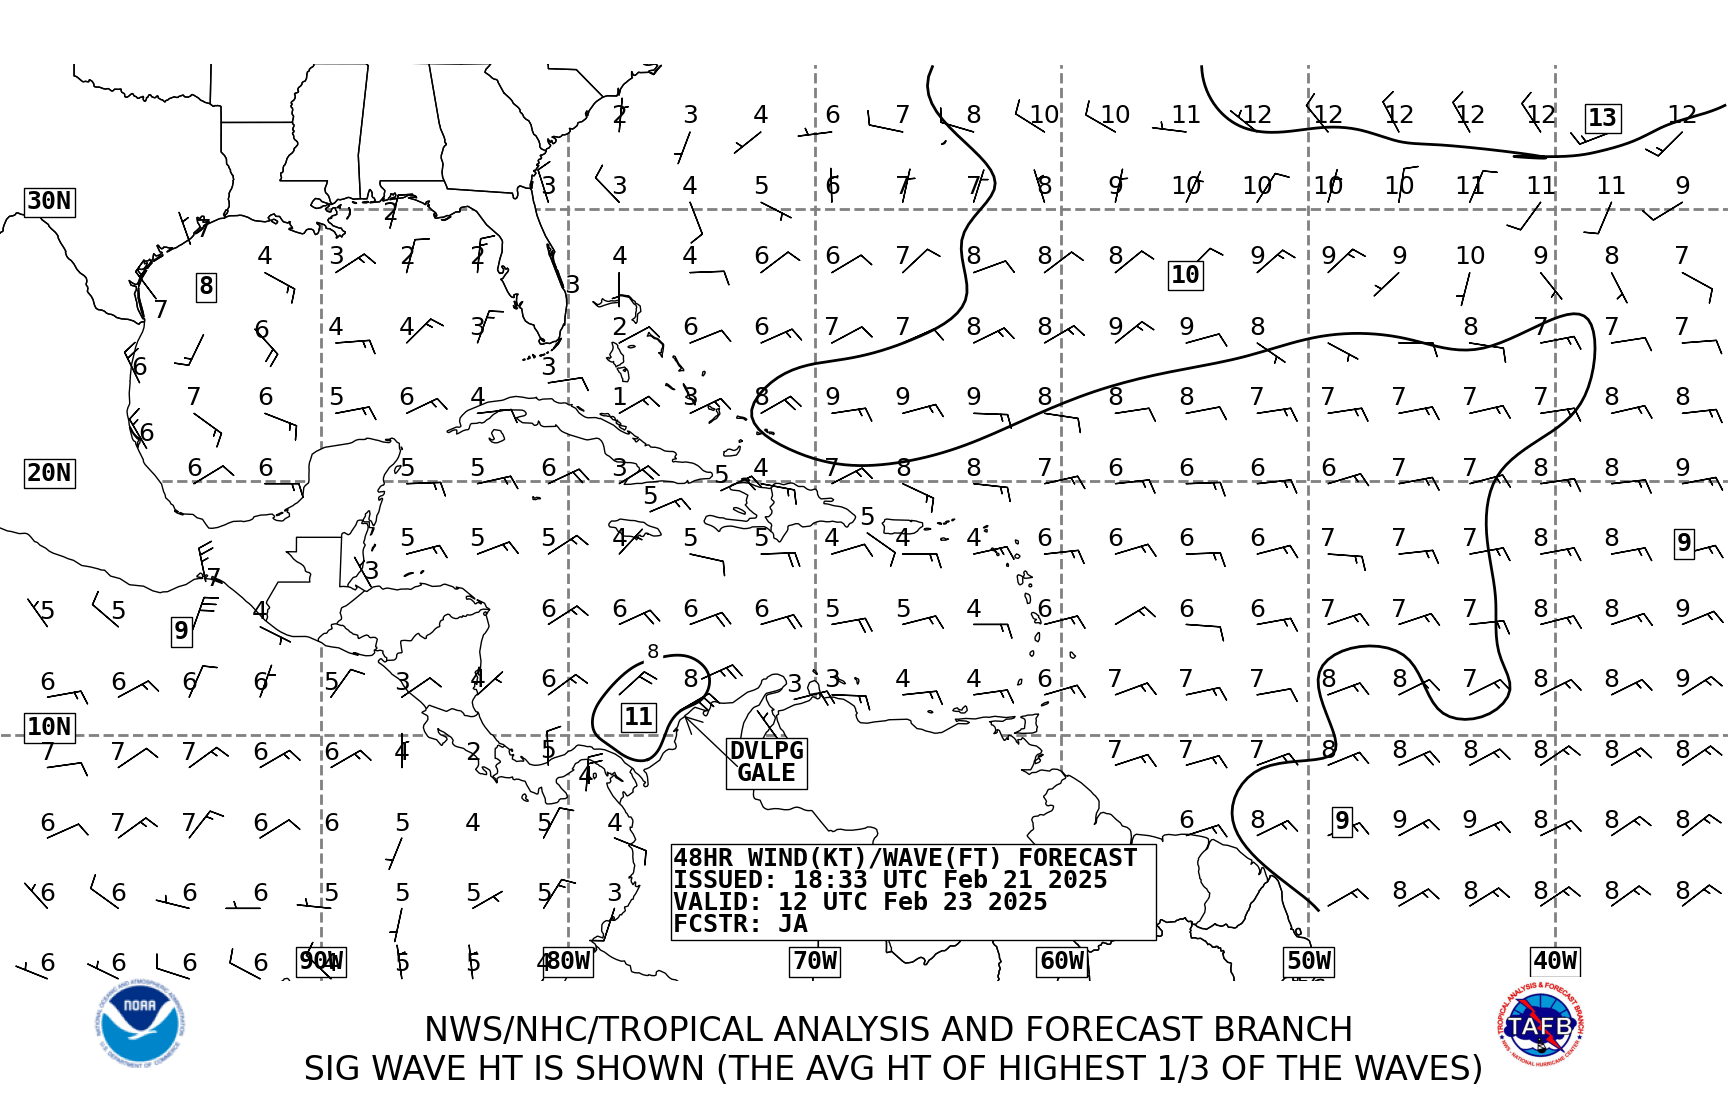 2 3 4 6 7 8 10 10 11 12 12 12 12 12 13 12
3 3 4 5 6 7 7 8 9 10 10 10 10 11 11 11 9
30N 2
7
4 3 2 2 4 4 6 6 7 8 8 8 9 9 9 10 9 8 7
8 3 10
7
6 4 4 3 2 6 6 7 7 8 8 9 9 8 8 7 7 7
6 3
7 6 5 6 4 1 3 8 9 9 9 8 8 8 7 7 7 7 7 8 8
6
20N 6 6 5 5 6 3 5 4 7 8 8 7 6 6 6 6 7 7 8 8 9
5
5
5 5 5 4 5 5 4 4 4 6 6 6 6 7 7 7 8 8 9
7 3
5 5 4 6 6 6 6 5 5 4 6 6 6 7 7 7 8 8 9
9
8
6 6 6 6 5 3 4 6 8 3 3 4 4 6 7 7 7 8 8 7 8 8 9
10N 11
7 7 7 6 6 4 2 5 7 7 7 8 8 8 8 8 8
DVLPG
GALE
4
6 7 7 6 6 5 4 5 4 6 8 9 9 9 8 8 8
48HR WIND(KT)/WAVE(FT) FORECAST
ISSUED: 18:33 UTC Feb 21 2025
VALID: 12 UTC Feb 23 2025
FCSTR: JA
6 6 6 6 5 5 5 5 3 8 8 8 8 8
6 6 6 6 90W 4 5 5 4 80W 70W 60W 50W 40W
NOAA
TROPICAL ANALYSIS & FORECAST BRANCH
TAFB
NWS - NATIONAL HURRICANE CENTER
NWS/NHC/TROPICAL ANALYSIS AND FORECAST BRANCH
SIG WAVE HT IS SHOWN (THE AVG HT OF HIGHEST 1/3 OF THE WAVES)